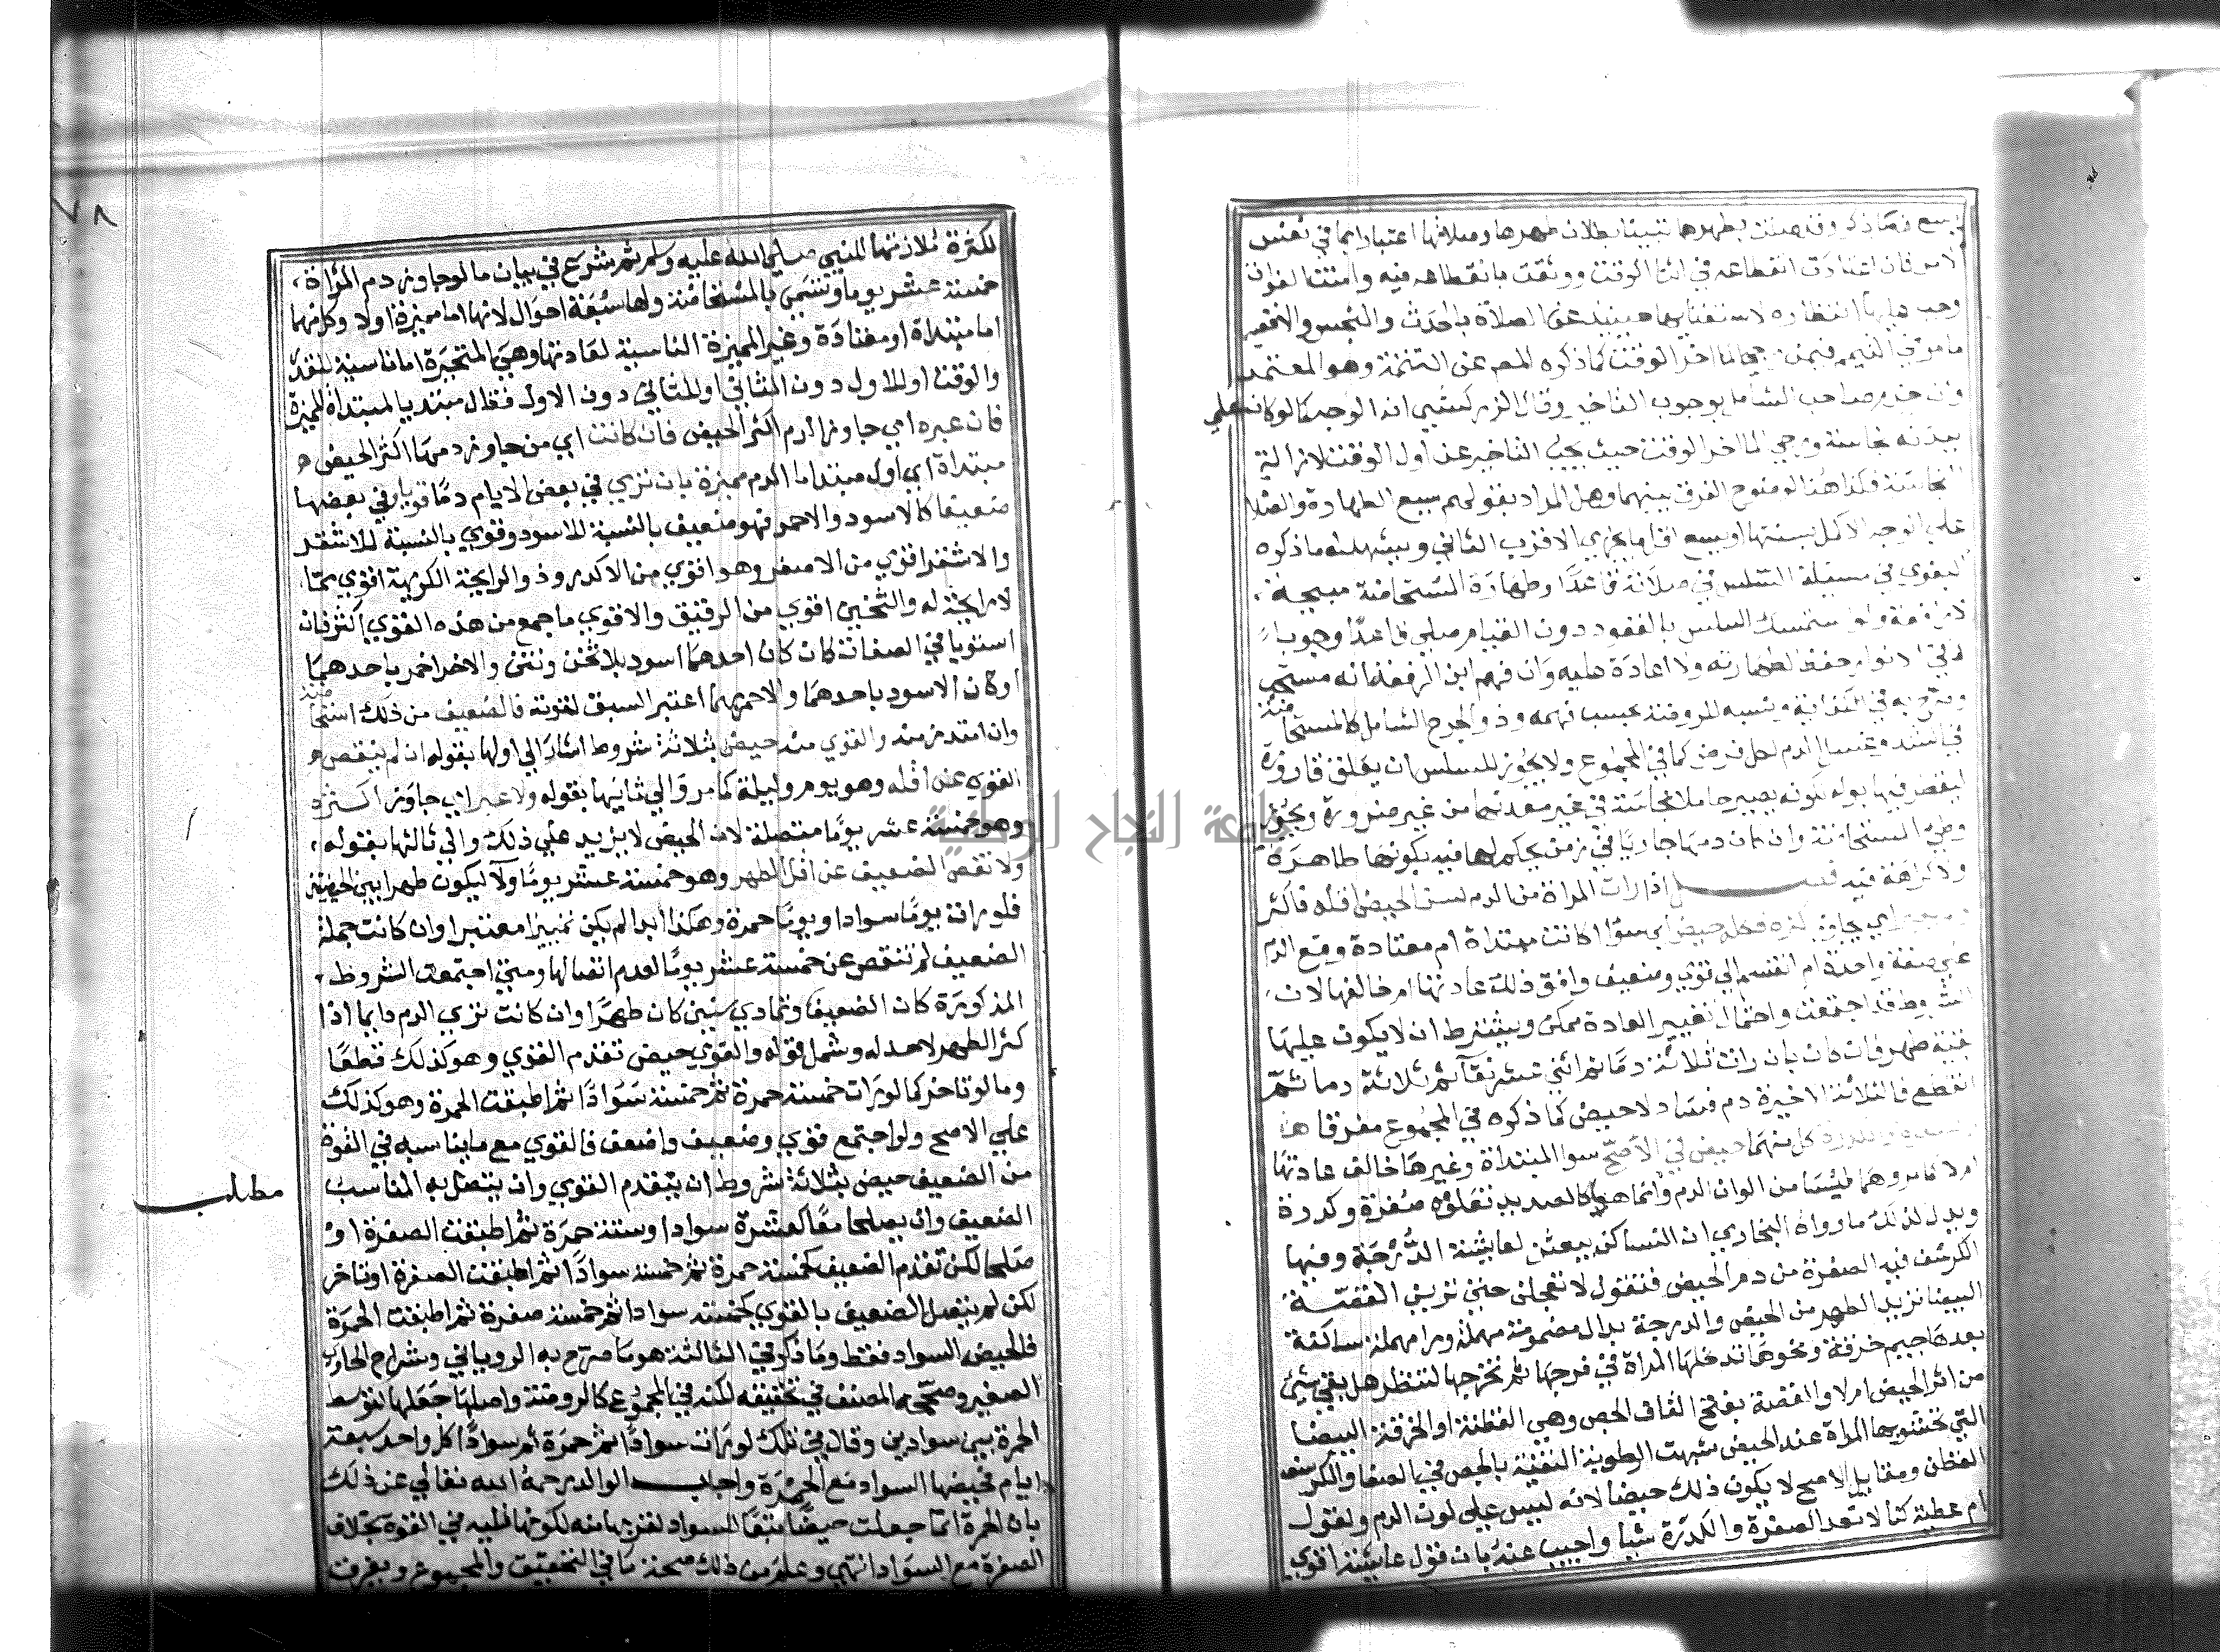 يسع ما ذكر وقد صلت بطهرها تبينا بطلان طهرها وصلاتها اعتبارا بما في نفس
الامر فان اعتادت انقطاعه في اثنا الوقت ووثقت بانقطاعه فيه وامنت الفوات
وجب عليها انتظاره لاستغنايها حينيذ عن الصلاة بالحدث والنجس والا ففيه
ما مر في التيمم فيمن يرجي الما اخر الوقت كما ذكره المص عن التتمة وهو المعتمد
وان جزم صاحب الشامل بوجوب التاخير وقال الزركشي انه الوجه كما لو كان علي
بدنه نجاسة ورجي الما اخر الوقت حيث يجب التاخير عن اول الوقت لازالة
النجاسة فكذا هنا لوضوح الفرق بينهما وهل المراد بقولهم يسع الطهارة والصلاة
علي الوجه الاكمل بسننها او يسع اقل ما يجزي الاقرب الثاني ويشهد له ما ذكره
البغوي في مسيلة السلس في صلاته قاعدا وطهارة المستحاضة مبيحة
لا رافعة ولو استمسك السلس بالقعود دون القيام صلي قاعدا وجوبا
كما في الانوار حفظا لطهارته ولا اعادة عليه وان فهم ابن الرفعة انه مستحب
وصرح به في الكفاية ونسبه للروضة بحسب فهمه وذو الجرح السايل كالمستحاضة
في الشد وغسل الدم لكل فرض كما في المجموع ولا يجوز للسلس ان يعلق قارورة
ليقطر فيها بوله لكونه يصير حاملا نجاسة في غير معدنها من غير ضرورة ويجوز
وطي المستحاضة وان كان دمها جاريا في زمن يحكم لها فيه بكونها طاهرة
ولا كراهة فيه فصل اذا رات المراة من الدم لسن الحيض اقله فاكثر
ولم يعبر اي يجاوز اكثره فكله حيض اي سوا كانت مبتداة ام معتادة وقع الدم
علي صفة واحدة ام انقسم الي قوي وضعيف وافق ذلك عادتها ام خالفها لان
الشروط قد اجتمعت واحتمال تغيير العادة ممكن ويشترط ان لا يكون عليها
بقية طهر فان كان بان رات ثلاثة دما ثم اثني عشر نقا ثم ثلاثة دما ثم
انقطع فالثلاثة الاخيرة دم فساد لا حيض كما ذكره في المجموع مفرقا هنا
والصفرة والكدرة كل منهما حيض في الاصح سوا المبتداة وغيرها خالف عادتها
ام لا كما مر وهما شيئا من الوان الدم وانما هما كالصديد تعلوه صفرة وكدرة
ويدل لذلك ما رواه البخاري ان النسا كن يبعثن لعايشة الدرجة وفيها
الكرسف فيه الصفرة من دم الحيض فتقول لا تعجلن حتي ترين القصة
البيضا تريد الطهر من الحيض والدرجة بدال مضمومة مهملة ورا مهملة ساكنة
بعدها جيم خرقة ونحوها تدخلها المراة في فرجها ثم تخرجها لتنظر هل بقي شي
من اثر الحيض ام لا والقصة بفتح القاف الجص وهي القطنة او الخرقة البيضا
التي تحتشي بها المراة عند الحيض شبهت الرطوبة النقية بالجص في الصفا والكرسف
القطن ومقابل الاصح لا يكون ذلك حيضا لانه ليس علي لون الدم ولقول
ام عطية كنا لا نعد الصفرة والكدرة شيا واجيب عنه بان قول عايشة اقوي
لكثرة ملازمتها للنبي صلي الله عليه وسلم ثم شرع في بيان ما لو جاوز دم المراة
خمسة عشر يوما وتسمي بالمستحاضة ولها سبعة احوال لانها اما مميزة او لا وكل منهما
اما مبتداة او معتادة وغير المميزة الناسية لعادتها وهي المتحيرة اما ناسية للقدر
والوقت او للاول دون الثاني او للثاني دون الاول فقال مبتديا بالمبتداة المميزة
فان عبره اي جاوز الدم اكثر الحيض فان كانت اي من جاوز دمها اكثر الحيض
مبتداة اي اول مبتداها الدم مميزة بان تري في بعض الايام دما قويا وفي بعضها
ضعيفا كالاسود والاحمر فهو ضعيف بالنسبة للاسود وقوي بالنسبة للاشقر
والاشقر اقوي من الاصفر وهو اقوي من الاكدر وذو الرايحة الكريهة اقوي مما
لا رايحة له والثخين اقوي من الرقيق والاقوي ما جمع من هذه القوي اكثر فان
استويا في الصفات كان كان احدهما اسود بلا ثخن ونتن والاخر احمر باحدهما
او كان الاسود باحدهما والاحمر بهما اعتبر السبق لقوته فالضعيف من ذلك استحاضة
وان امتد زمنه والقوي منه حيض بثلاثة شروط اشار الي اولها بقوله ان لم ينقص
القوي عن اقله وهو يوم وليلة كما مر والي ثانيها بقوله ولا عبر اي جاوز اكثره
وهو خمسة عشر يوما متصلة لان الحيض لا يزيد علي ذلك والي ثالثها بقوله
ولا نقص الضعيف عن اقل الطهر وهو خمسة عشر يوما ولا ليكون طهرا بين الحيضتين
فلو رات يوما سوادا ويوما حمرة وهكذا ابدا لم يكن تمييزا معتبرا وان كانت جملة
الضعيف لم تنقص عن خمسة عشر يوما لعدم اتصالها ومتي اجتمعت الشروط
المذكورة كان الضعيف وتمادي سنين كان طهرا وان كانت تري الدم دايما اذا
كثر الطهر لا حد له وشمل قوله والقوي حيض تقدم القوي وهو كذلك قطعا
وما لو تاخر كما لو رات خمسة حمرة ثم خمسة سوادا ثم اطبقت الحمرة وهو كذلك
علي الاصح ولو اجتمع قوي وضعيف واضعف فالقوي مع ما يناسبه في القوة
من الضعيف حيض بثلاثة شروط ان يتقدم القوي وان يتصل به المناسب
الضعيف وان يصلحا معا كعشرة سوادا وستة حمرة ثم اطبقت الصفرة او
صلحا لكن تقدم الضعيف كخمسة حمرة ثم خمسة سوادا ثم اطبقت الصفرة او تاخر
لكن لم يتصل الضعيف بالقوي كخمسة سوادا ثم خمسة صفرة ثم اطبقت الحمرة
فالحيض السواد فقط وما ذكر في الثالثة هو ما صرح به الروياني وشراح الحاوي
الصغير وصححه المصنف في تحقيقه لكنه في المجموع كالروضة واصلها جعلها كتوسط
الحمرة بين سوادين وقال في تلك لو رات سوادا ثم حمرة ثم سوادا كل واحد سبعة
ايام فحيضها السواد مع الحمرة واجاب الوالد رحمه الله تعالي عن ذلك
بان الحمرة انما جعلت حيضا تبعا للسواد لقربها منه لكونها تليه في القوة بخلاف
الصفرة مع السواد انتهي وعلم من ذلك صحة ما في التحقيق والمجموع ويفرق
مطلب
٧٨
جامعة النجاح الوطنية